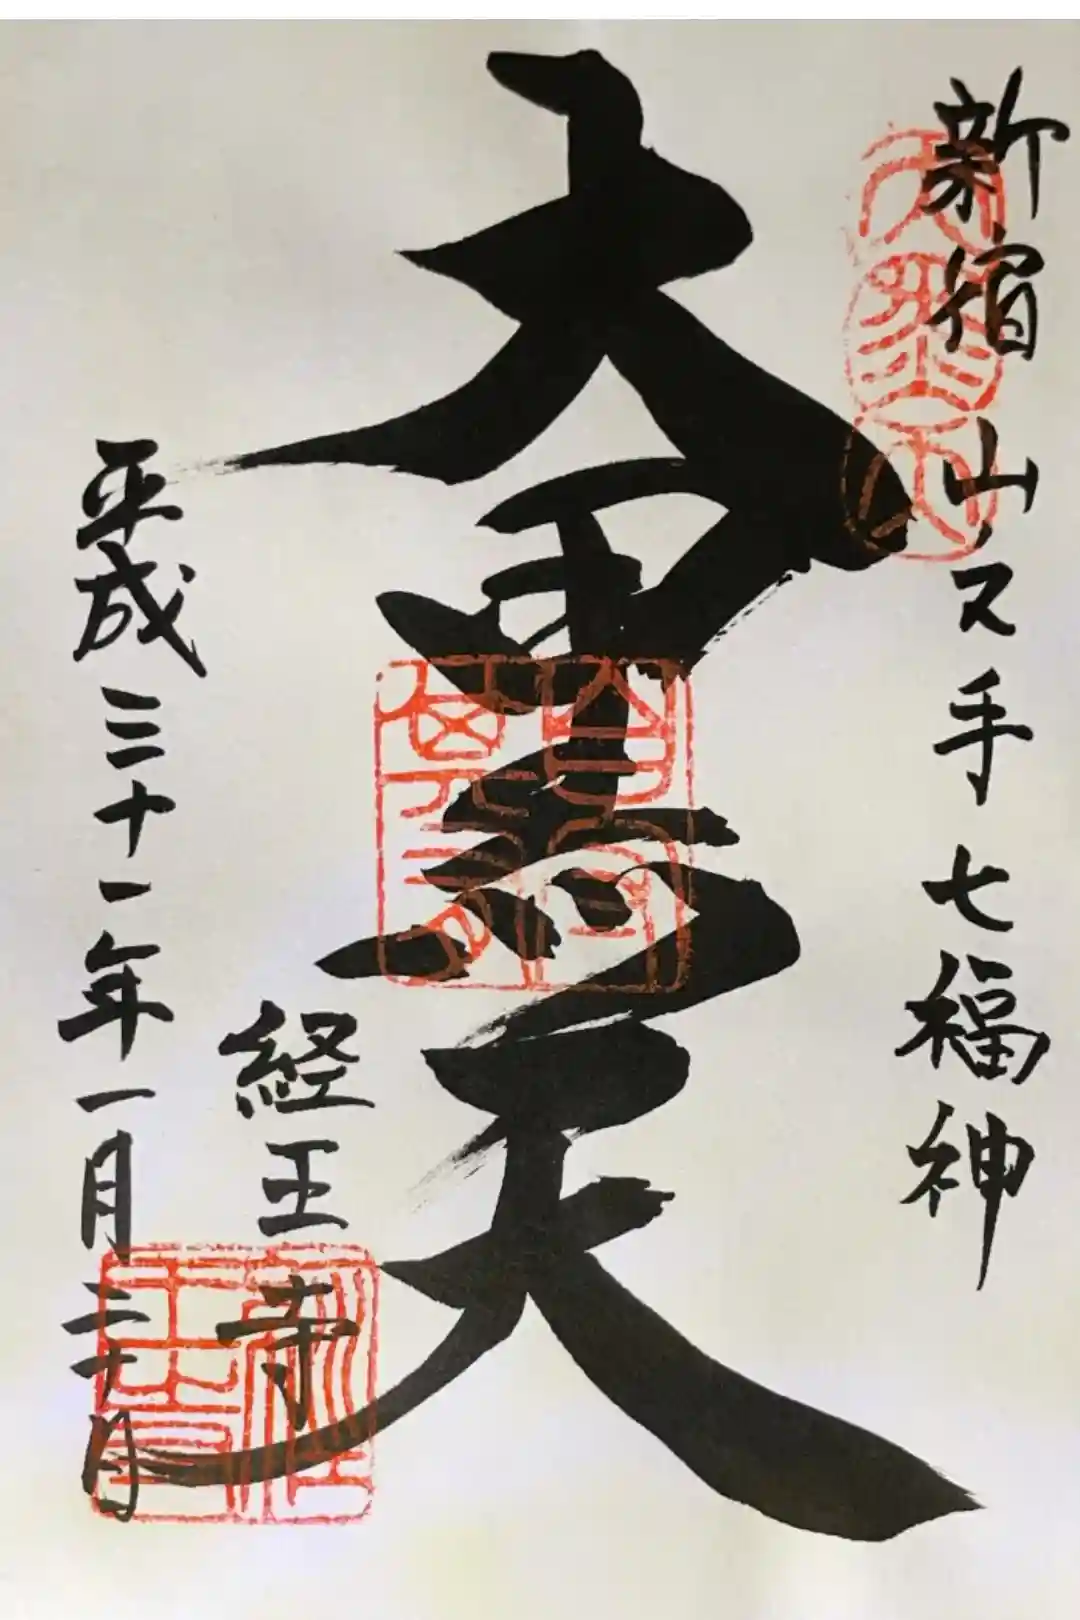 新宿山ノ手七福神
大黒天
経王寺
平成三十一年一月二十日